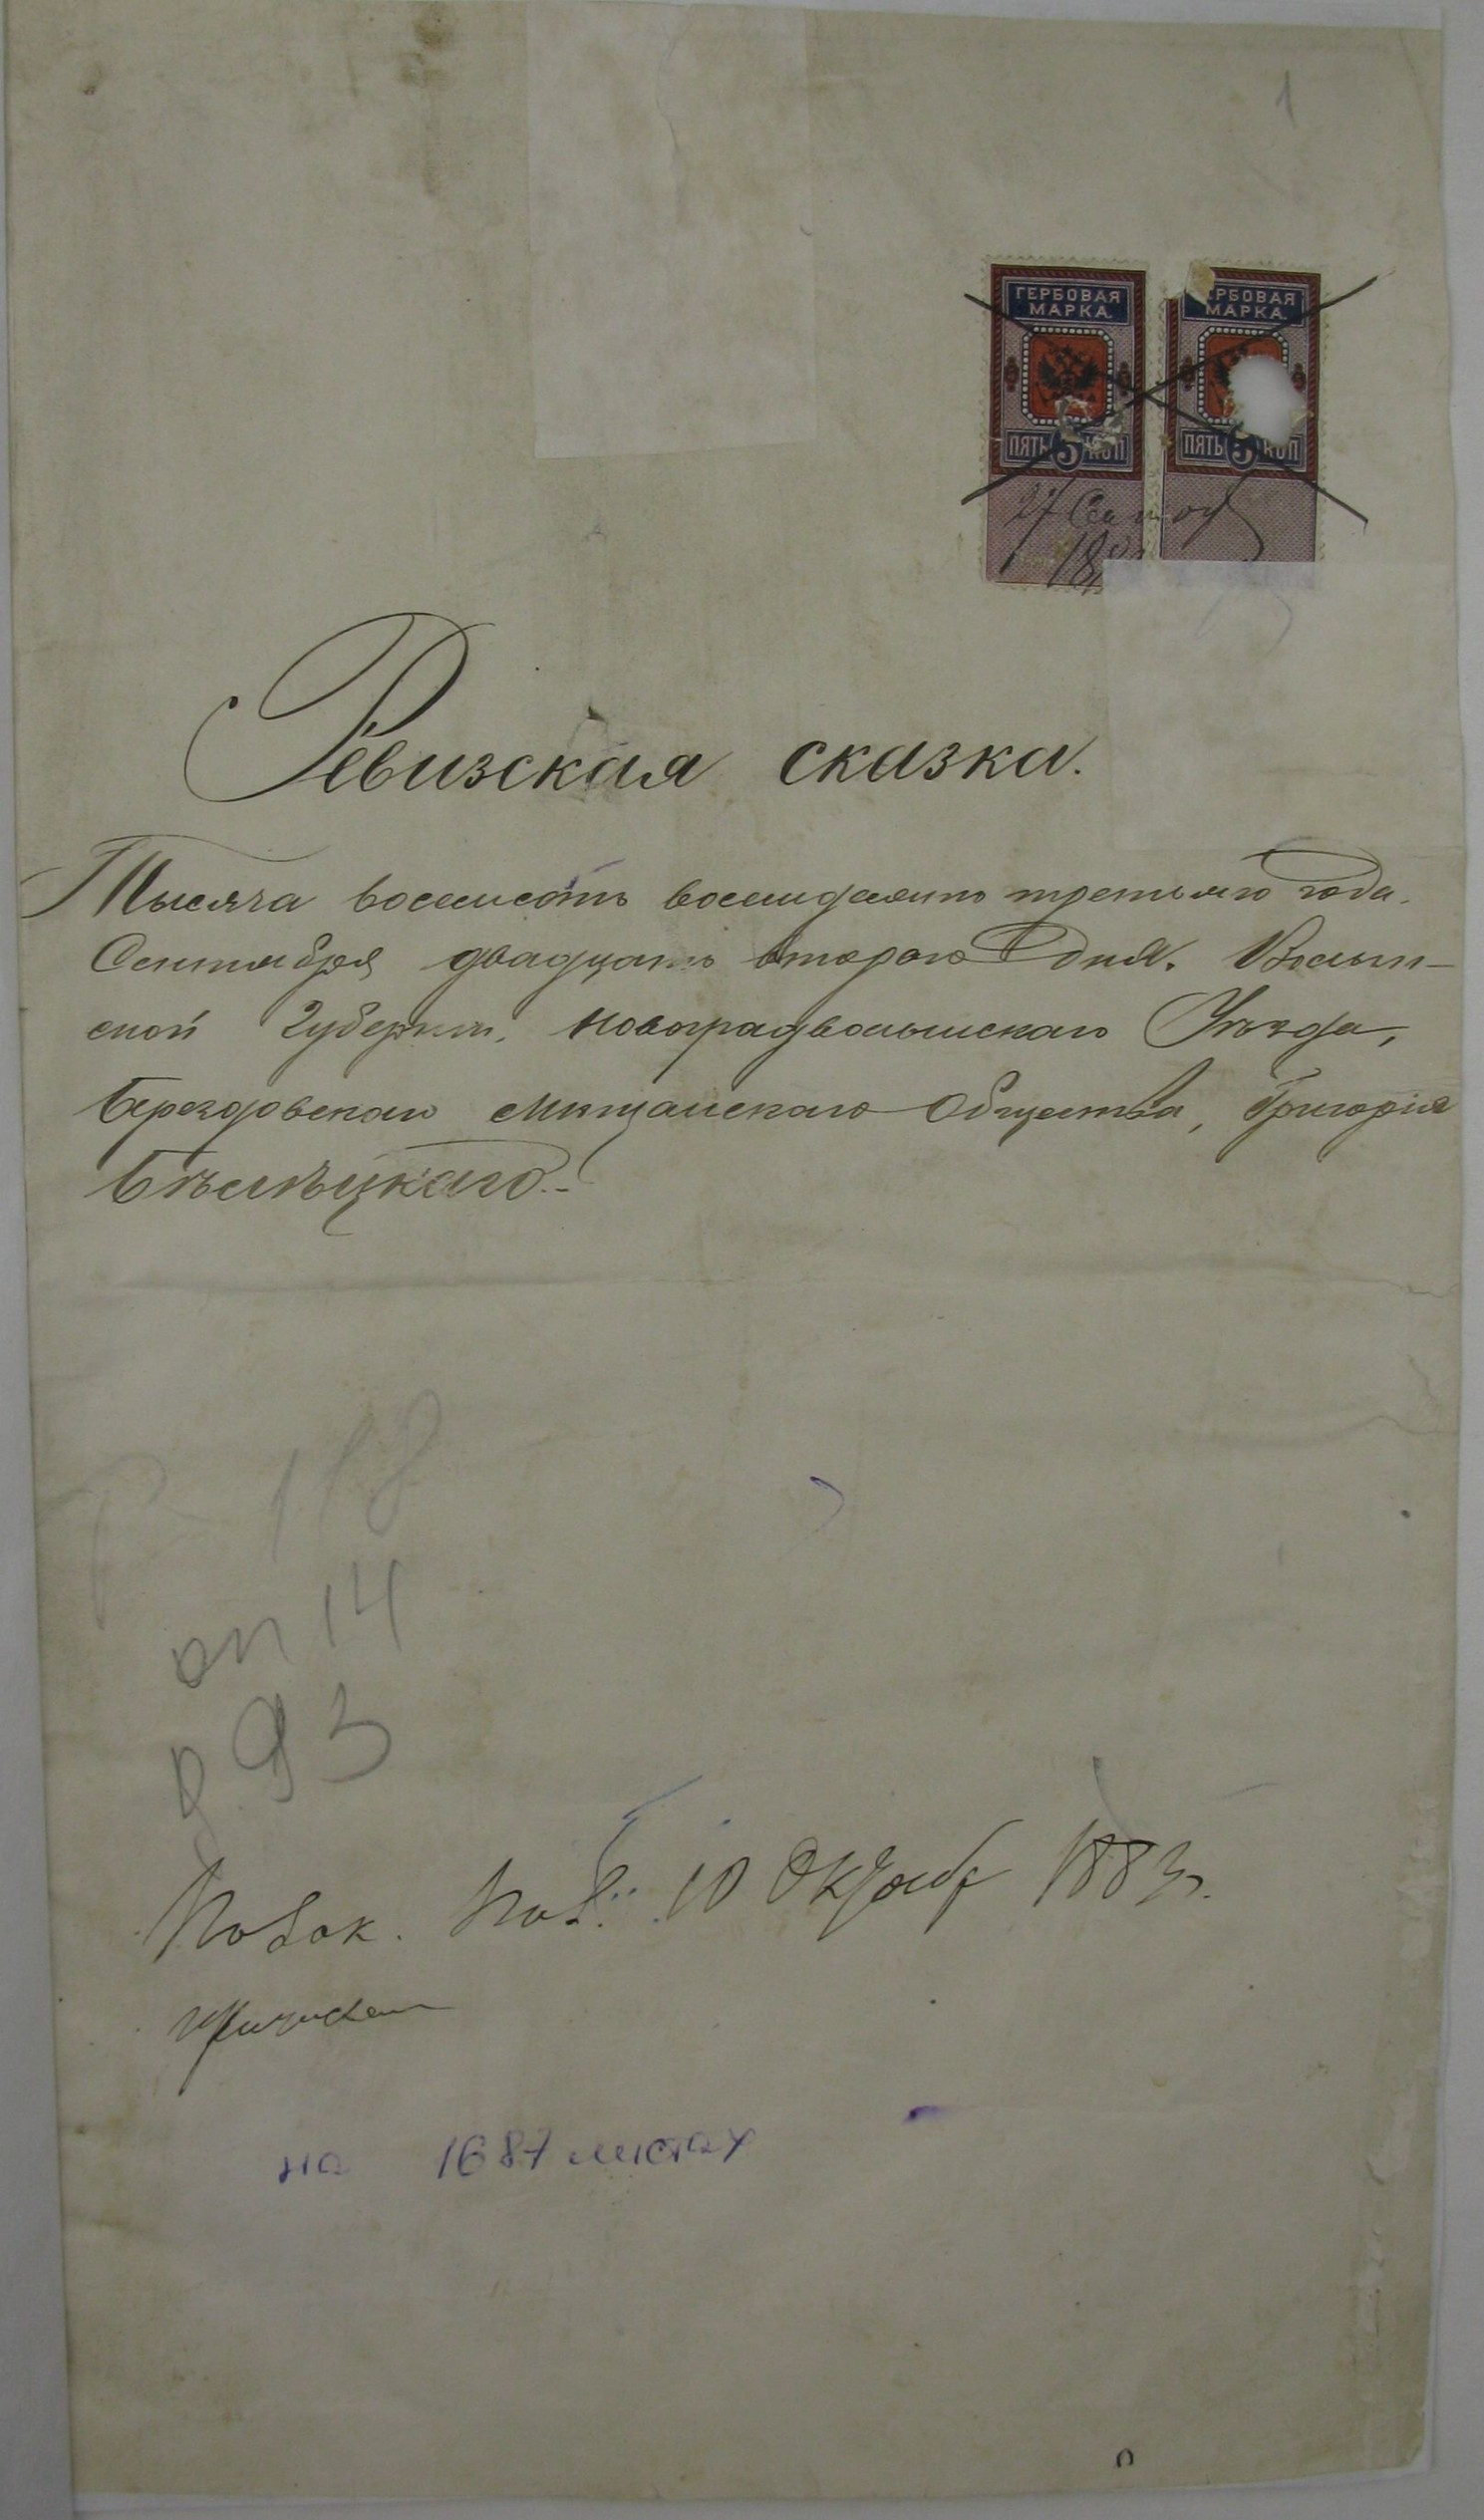 1
ГЕРБОВАЯ МАРКА.
ПЯТЬ 5 КОП
РБОВАЯ МАРКА.
ПЯТЬ 5 КОП
27 Сентяб
18
Ревизская сказка.
Тысяча восемьсотъ восемдесятъ третьяго года.
Сентября двадцать втораго дня. Волын-
ской Губерніи, Новоградволынскаго Уѣзда,
Берездовскаго мѣщанскаго Общества, Григорія
Бѣлѣцкаго.-
118
оп 14
д 93
10 Октября 1883 г.
на 1687 листах